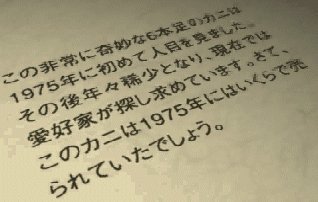 この非常に奇妙な6本足のカニは
1975年に初めて人目を見ました。
その後年々稀少となり、現在では
愛好家が探し求めています。さて、
このカニは1975年にはいくらで売
られていたでしょう。